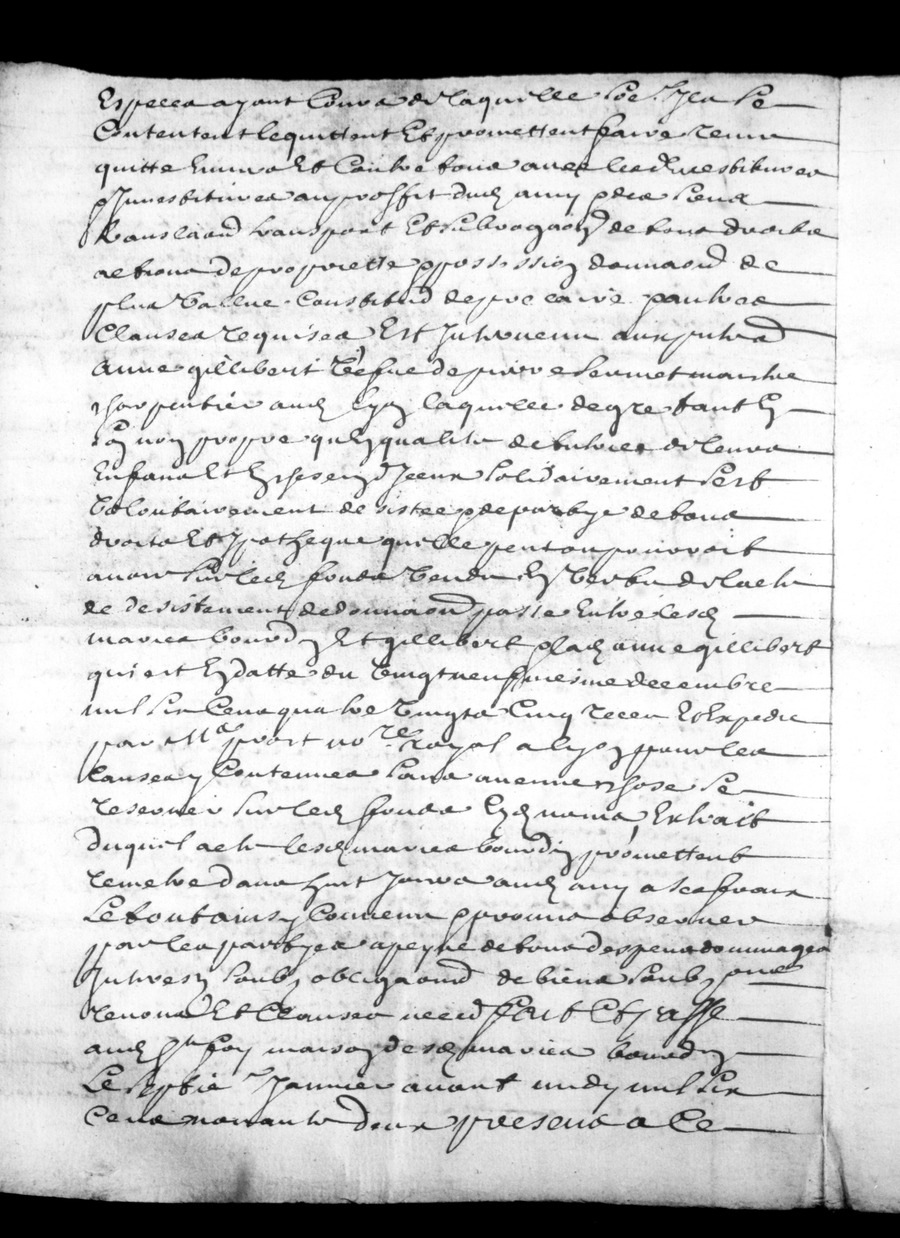 Especes ayant Cours de laquelle so.e Iceux se
Contentent le quittent Et promettent faire tenir
quitte Envers Et Contre tous avec les Investitures
p Investitures au proffit dud amy p les siens
translaõn transport Et subrogaõn de tous droits
actions de proprietté p possession donnaõn de
plus vallue Constitud de precaire pautres
Clauses requises Est Intervenu aux presentes
Anne gillibert vefve de pierre sermet maistre
charpentier aud lyon laquelle de gre tant En
son nom propre qu'En qualite de tutrice de leurs
Enfans Et solidairement sest
volontairement desistee p departye de tous
droits Et ypotheque quelle peut ou pourroit
avoir sur led fonds vendu En vertu de lacte
de desistement de donnaõn passé Entre lesd
maries bourdin Et gillibert p lad anne gillibert
qui est En datte du vingtneufviesme decembre
mil six Cens quatre vingts Cinq receu Et Expedié
par Me prost no.re Royal a lyon pour les
Causes y Contenues sans aucune chose se
reserver sur led fonds Esd noms Extrait
duquel acte lesd maries bourdin promettent
remettre dans huit Jours aud amy a ses frais
Le tout ainsy Convenu p promis observer
par les partyes a peyne de tous despens dommages
Interests soubz obligaõns de biens soubz
renonõns Et Clauses necess. fait Et passé
aud foy maison desd maries bourdin
Le septie Janvier avant midy mil six
Cens nonante deux presens a Ce